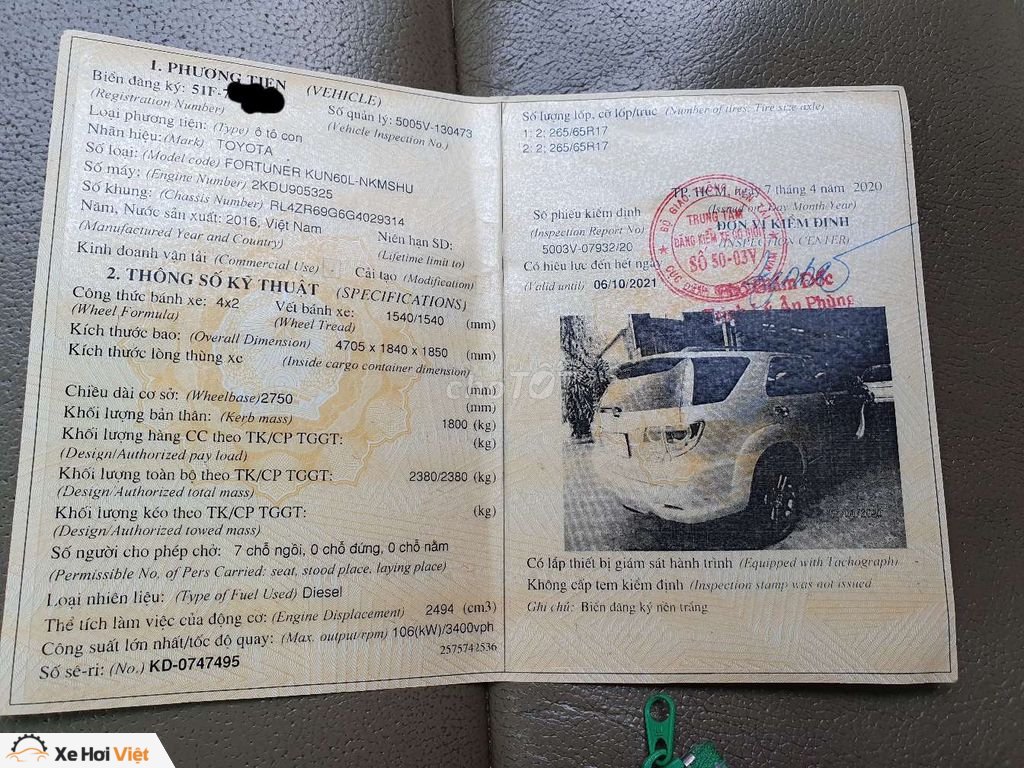 1. PHƯƠNG TIỆN (VEHICLE)
Biển đăng ký: 51F-
(Registration Number)
Số quản lý: 5005V-130473
(Vehicle Inspection No.)
Loại phương tiện: (Type) ô tô con
Nhãn hiệu: (Mark) TOYOTA
Số loại: (Model code) FORTUNER KUN60L-NKMSHU
Số máy: (Engine Number) 2KDU905325
Số khung: (Chassis Number) RL4ZR69G6G4029314
Năm, Nước sản xuất: 2016, Việt Nam
(Manufactured Year and Country)
Niên hạn SD:
(Lifetime limit to)
Kinh doanh vận tải (Commercial Use)
Cải tạo (Modification)
2. THÔNG SỐ KỸ THUẬT (SPECIFICATIONS)
Công thức bánh xe: 4x2
(Wheel Formula)
Vết bánh xe: 1540/1540 (mm)
(Wheel Tread)
Kích thước bao: (Overall Dimension) 4705 x 1840 x 1850 (mm)
Kích thước lòng thùng xe (Inside cargo container dimension)
(mm)
Chiều dài cơ sở: (Wheelbase) 2750 (mm)
Khối lượng bản thân: (Kerb mass) 1800 (kg)
Khối lượng hàng CC theo TK/CP TGGT: (kg)
(Design/Authorized pay load)
Khối lượng toàn bộ theo TK/CP TGGT: 2380/2380 (kg)
(Design/Authorized total mass)
Khối lượng kéo theo TK/CP TGGT: (kg)
(Design/Authorized towed mass)
Số người cho phép chở: 7 chỗ ngồi, 0 chỗ đứng, 0 chỗ nằm
(Permissible No. of Pers Carried: seat, stood place, laying place)
Loại nhiên liệu: (Type of Fuel Used) Diesel
Thể tích làm việc của động cơ: (Engine Displacement) 2494 (cm3)
Công suất lớn nhất/tốc độ quay: (Max. output/rpm) 106(kW)/3400vph
2575742536
Số sê-ri: (No.) KD-0747495
Số lượng lốp, cỡ lốp/trục (Number of tires: Tire size axle)
1: 2; 265/65R17
2: 2; 265/65R17
TP. HCM, ngày 7 tháng 4 năm 2020
(Issued on: Day Month Year)
Số phiếu kiểm định
(Inspection Report No)
5003V-07932/20
ĐƠN VỊ KIỂM ĐỊNH
(INSPECTION CENTER)
Có hiệu lực đến hết ngày
(Valid until) 06/10/2021
TRUNG TÂM
ĐĂNG KIỂM XE CƠ GIỚI
SỐ 50-03V
Phó Giám Đốc
Có lắp thiết bị giám sát hành trình (Equipped with Tachograph)
Không cấp tem kiểm định (Inspection stamp was not issued
Ghi chú: Biển đăng ký nền trắng
Xe Hơi Việt